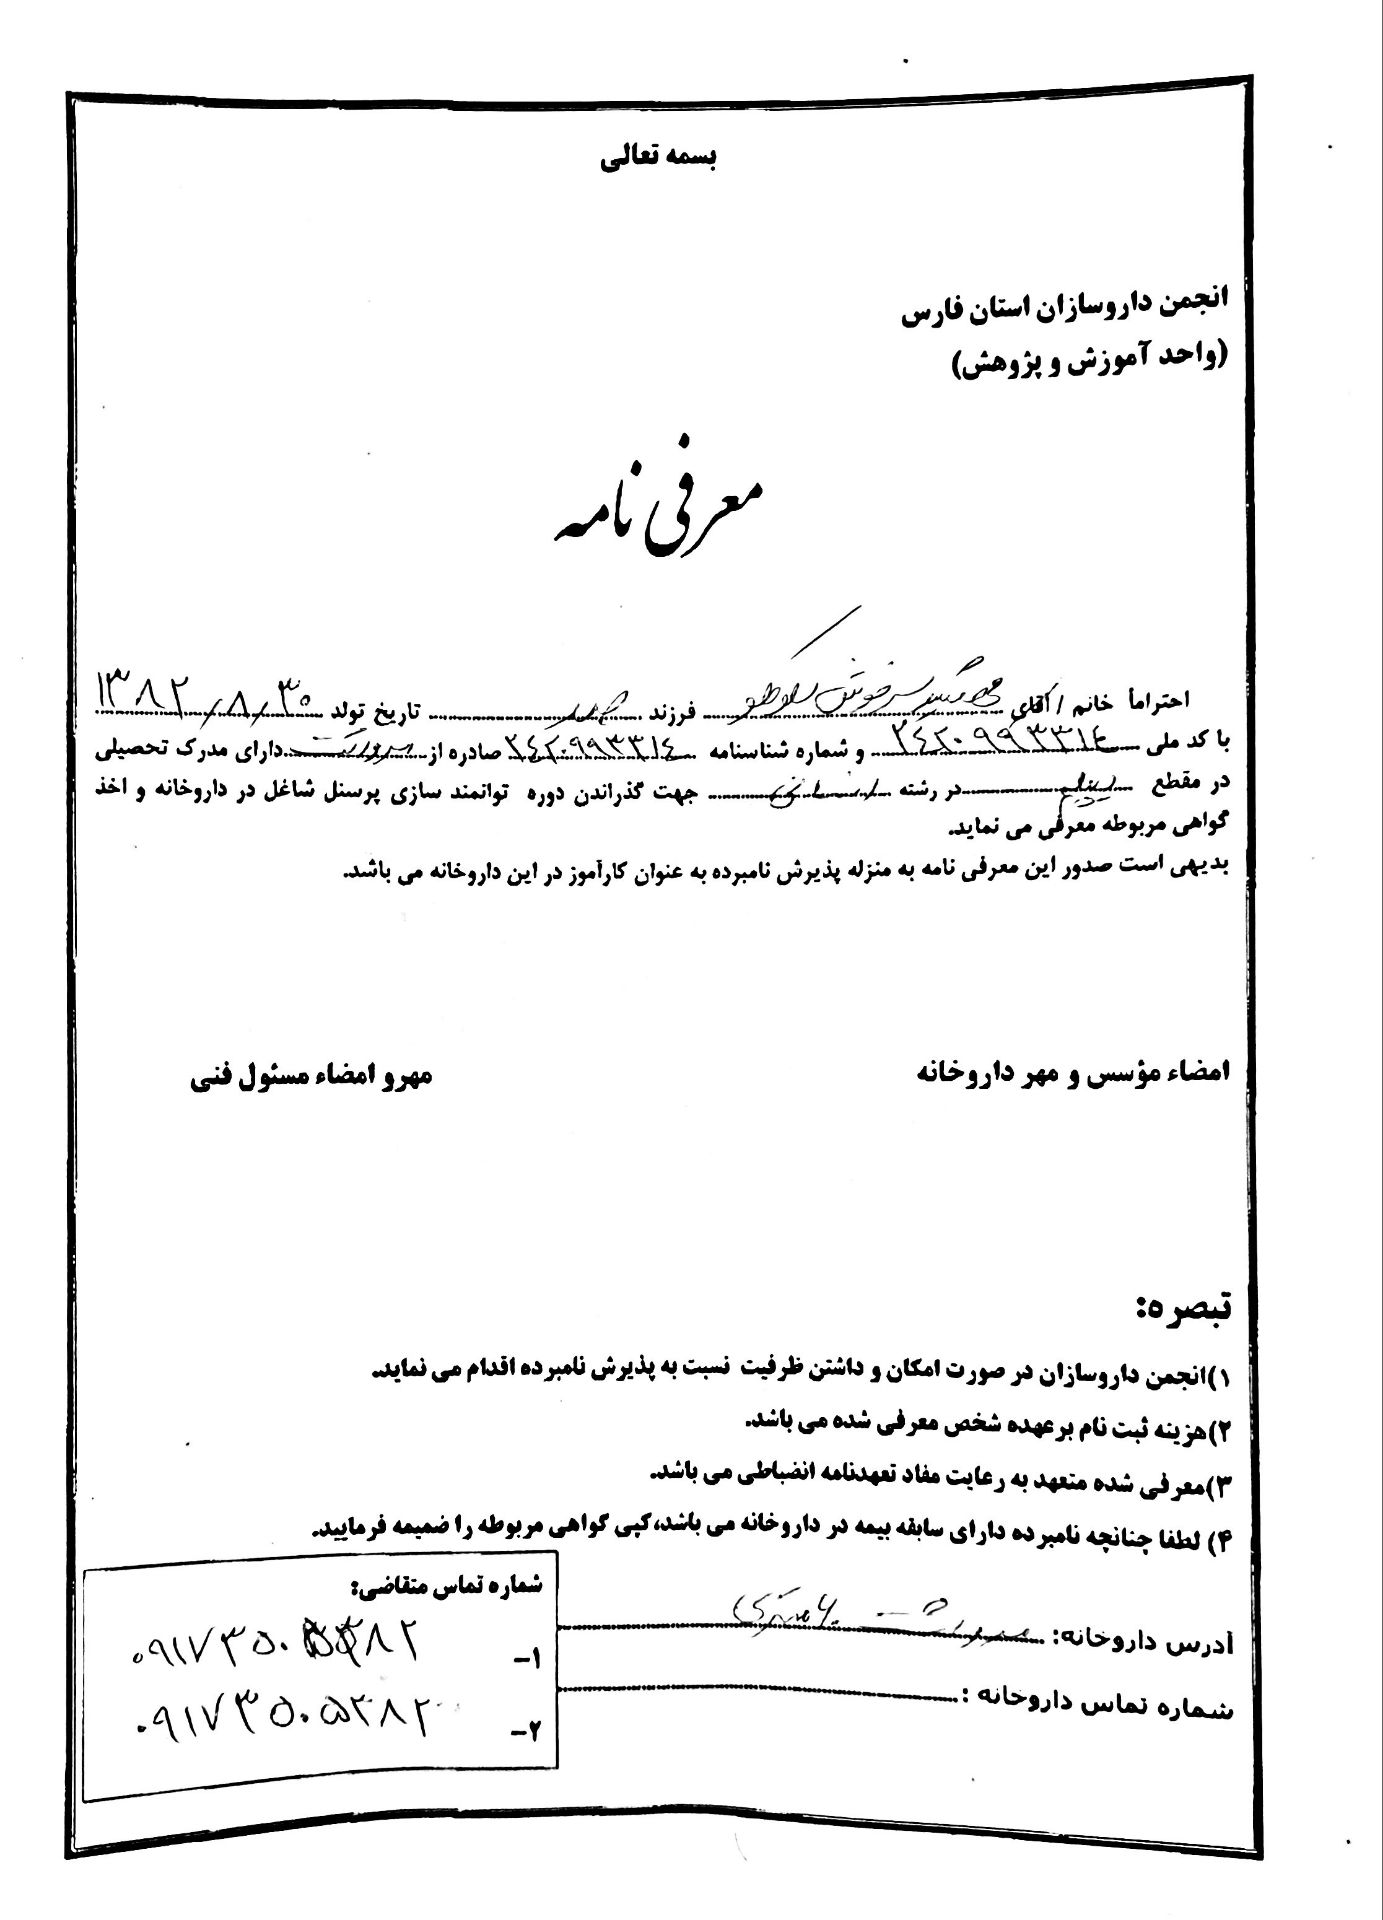 بسمه تعالی
انجمن داروسازان استان فارس
(واحد آموزش و پژوهش)
معرفی نامه
احتراماً خانم / آقای فرزند تاریخ تولد ۱۳۸۲/۸/۳۰
با کد ملی ۲۴۲۰۹۹۳۳۱۴ و شماره شناسنامه ۲۴۲۰۹۹۳۳۱۴ صادره از دارای مدرک تحصیلی
در مقطع دیپلم در رشته انسانی جهت گذراندن دوره توانمند سازی پرسنل شاغل در داروخانه و اخذ
گواهی مربوطه معرفی می نماید.
بدیهی است صدور این معرفی نامه به منزله پذیرش نامبرده به عنوان کارآموز در این داروخانه می باشد.
امضاء مؤسس و مهر داروخانه مهرو امضاء مسئول فنی
تبصره:
۱)انجمن داروسازان در صورت امکان و داشتن ظرفیت نسبت به پذیرش نامبرده اقدام می نماید.
۲)هزینه ثبت نام برعهده شخص معرفی شده می باشد.
۳)معرفی شده متعهد به رعایت مفاد تعهدنامه انضباطی می باشد.
۴) لطفا چنانچه نامبرده دارای سابقه بیمه در داروخانه می باشد،کپی گواهی مربوطه را ضمیمه فرمایید.
آدرس داروخانه: ۶۰ متری
شماره تماس داروخانه :
شماره تماس متقاضی:
۱-
۲- ۰۹۱۷۳۵۰۵۳۸۲